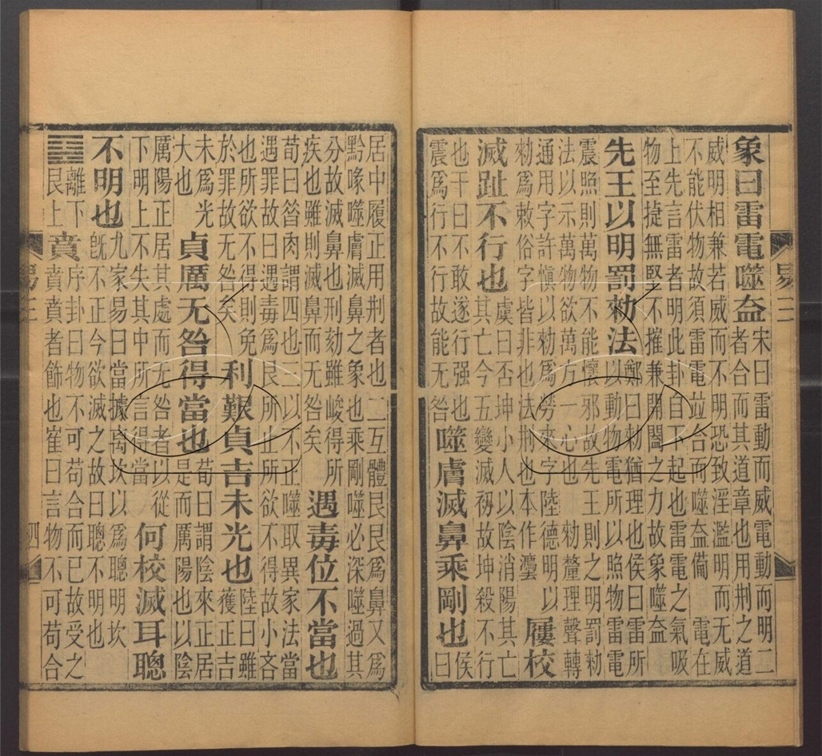 象曰雷電噬盍
宋曰雷動而威電動而明二
者合而其道章也用刑之道
威明相兼若威而不明恐致淫濫明而无威
不能伏物故須雷電竝合而噬盍備　電在
上先言雷者明此卦自下起也雷電之氣吸
物至捷無堅不摧兼開闔之力故象噬盍
先王以明罰勑法
鄭曰勑猶理也侯曰雷所
以動物電所以照物雷電
震照則萬物不能懷邪故先王則之明罰勑
法以示萬物欲萬方一心也　勑釐理聲轉
通用字許慎以勑爲勞來字陸德明以
勑爲敕俗字皆非也法刑也本作灋
屨校
滅趾不行也
虞曰否坤小人以陰消陽其亡
其亡今五變滅初故坤殺不行
也干曰不敢遂行强也
震爲行不行故能无咎
噬膚滅鼻乘剛也
侯
曰
易三
居中履正用刑者也二互體艮艮爲鼻又爲
黔喙噬膚滅鼻之象也乘剛噬必深噬過其
分故滅鼻也刑刻雖峻得所
疾也雖則滅鼻而无咎矣
遇毒位不當也
荀曰昝肉謂四也三以不正噬取異家法當
遇罪故曰遇毒爲艮所止所欲不得故小吝
也所欲不得則免
於罪故无咎矣
利艱貞吉未光也
陸曰雖
獲正吉
未爲光
大也
貞厲无咎得當也
荀曰謂陰來正居
是而厲陽也以陰
厲陽正居其處而无咎者以從
下明上不失其中所言得當
何校滅耳聰
不明也
九家易曰當據离坎以爲聰明坎
旣不正今欲滅之故曰聰不明也
䷕
離下
艮上
賁
序卦曰物不可苟合而已故受之
賁賁者飾也崔曰言物不可苟合
易三
四